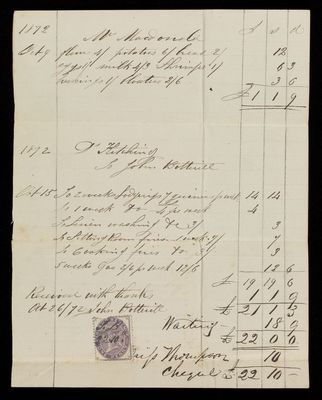 £ s d
1872 Mr Macdonald
Oct 9 4/ potatoes 6/ bread 2/ 12
eggs milk 2/3 Shrimps 1/ 6 3
1/ Bloaters 2/6 3 6
£ 1 1 9
1872
To John Botterill
Oct 15 To 2 weeks Lodgings 7 guineas per week 14 14
To 1 week Do 4£ per week 4
To Linen washing &c 3/ 3
To Sitting Room fires 1 week 7/ 7
To Cooking fires Do 3/ 3
5 weeks Gas 2/6 per week 12/6 12 6
£ 19 19 6
Received with thanks 1 1 9
Oct 26/72 John Botterill £ 21 1 3
Waiting 18 9
£ 22 0 0
Thompson 10
Cheque £ 22 10 -